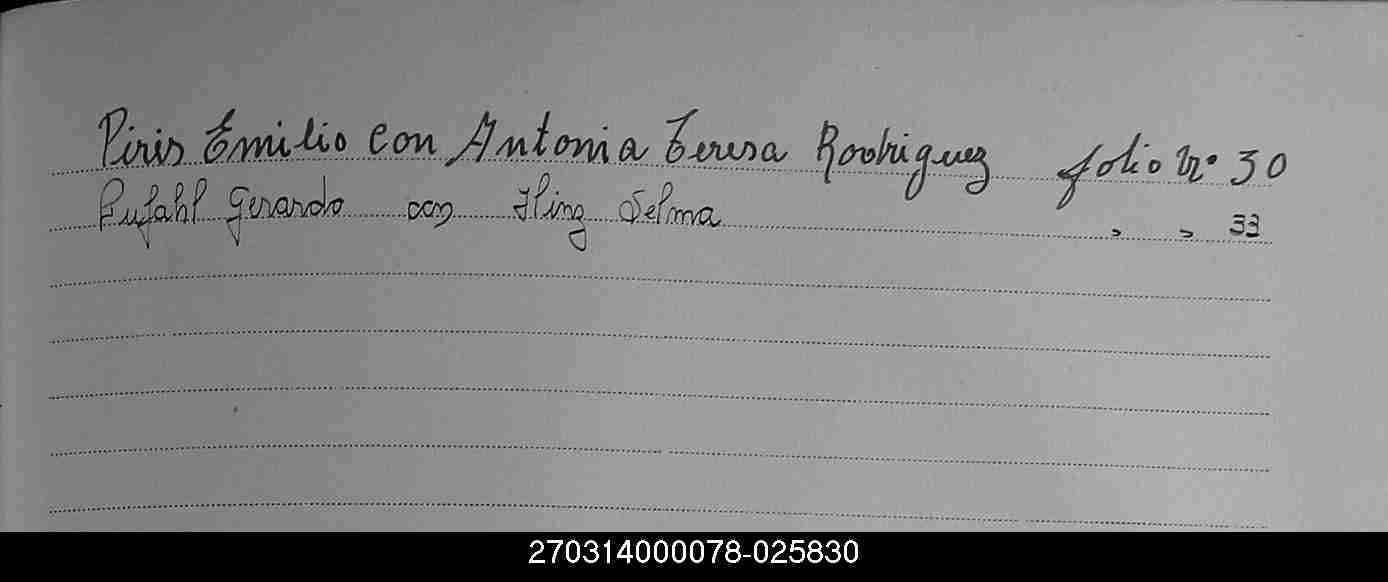 Piris Emilio con Antonia Teresa Rodriguez folio Nº 30
Pufahl Gerardo con Hinz Selma " " 33
270314000078-025830